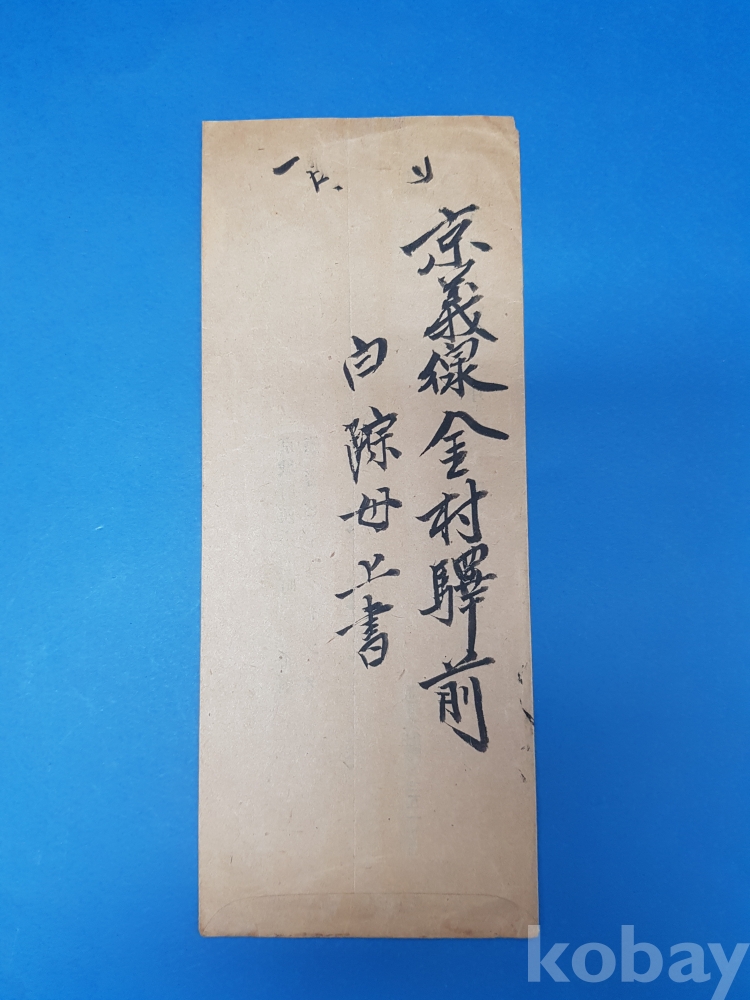 京義線金村驛前
白踪母上書
kobay